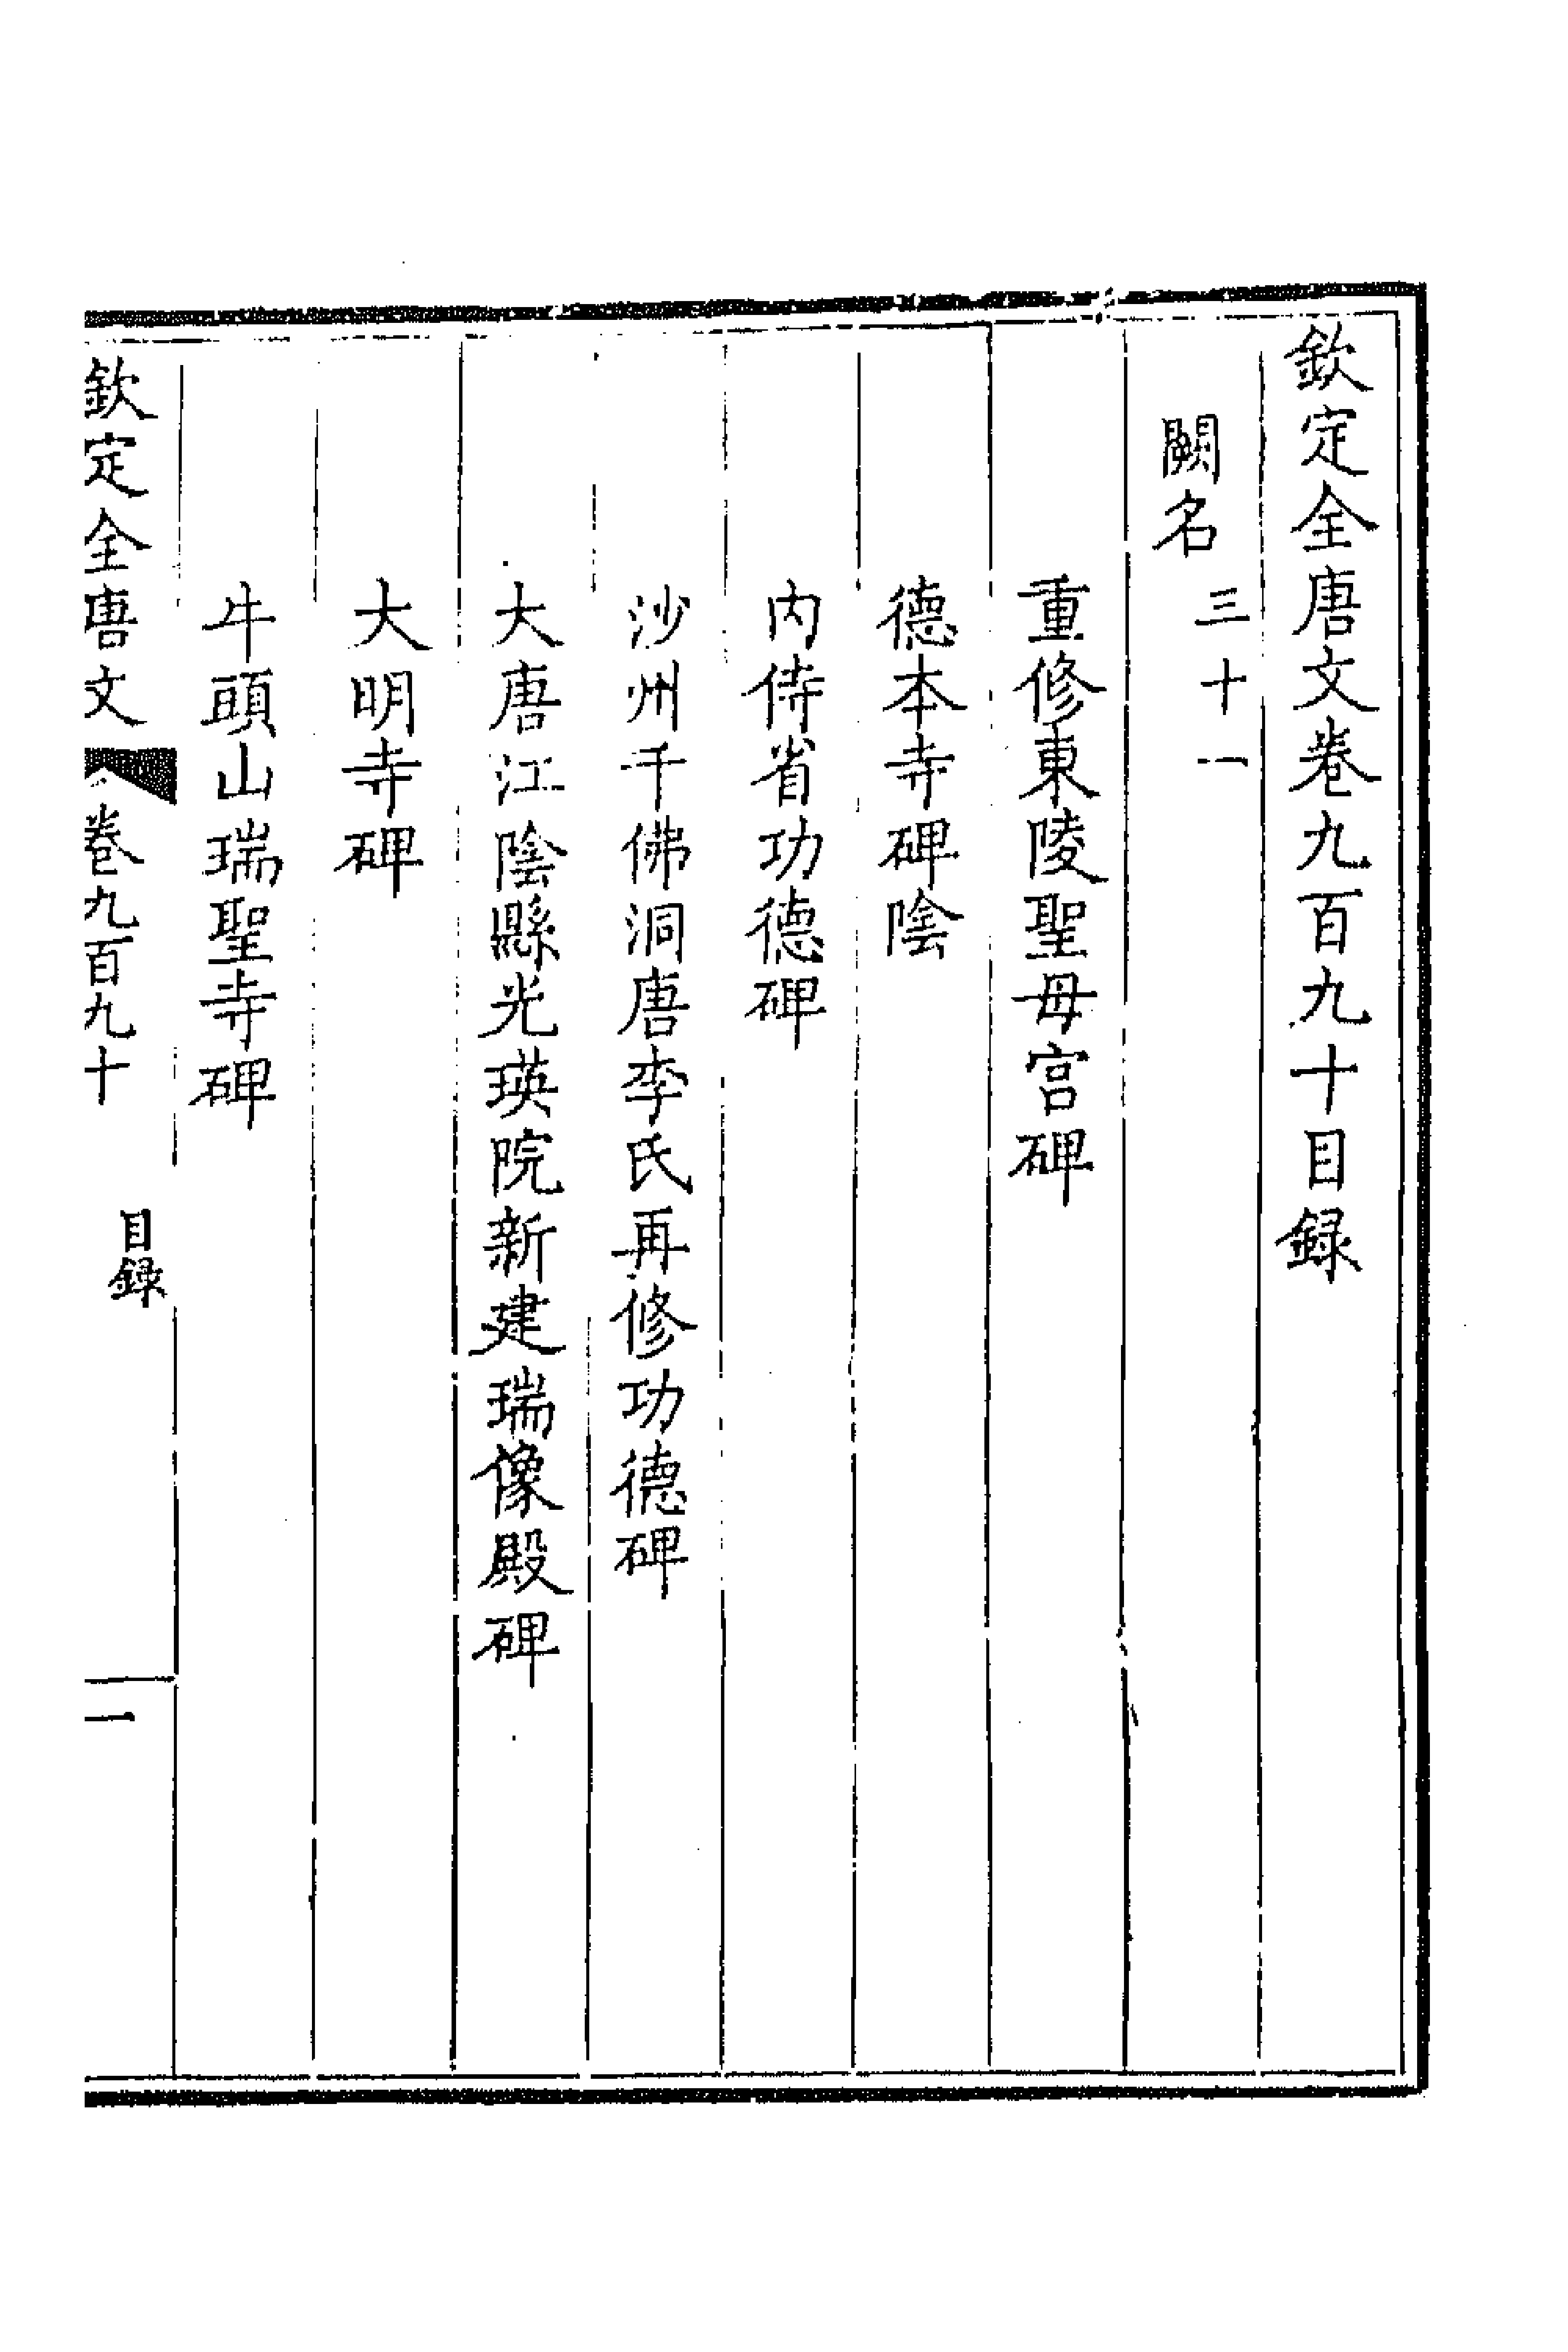 欽定全唐文卷九百九十目録
闕名三十一
重修東陵聖母宮碑
德本寺碑陰
內侍省功德碑
沙州千佛洞唐李氏再修功德碑
大唐江陰縣光瑛院新建瑞像殿碑
大明寺碑
牛頭山瑞聖寺碑
欽定全唐文
卷九百九十
目録
一